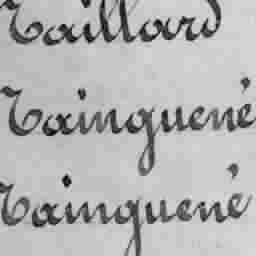 Taillard
Tainguené
Tainguené